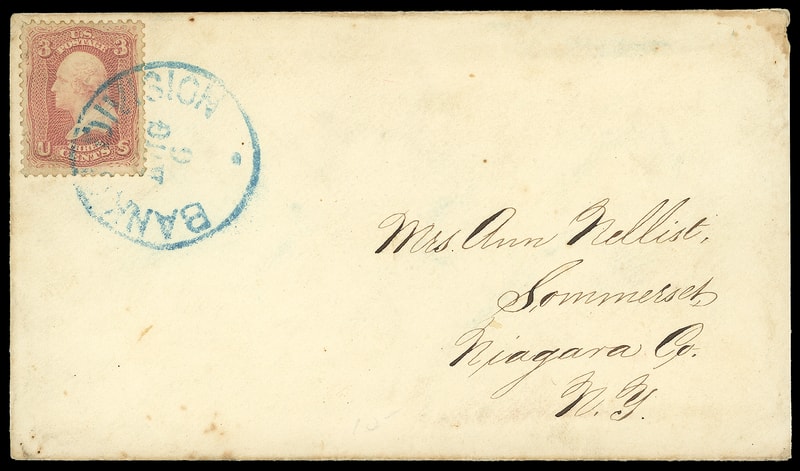 3 U.S. 3
POSTAGE
U THREE S
CENTS
DIVISION
BANK
Mrs. Ann Nellist,
Sommerset,
Niagara Co.
N.Y.